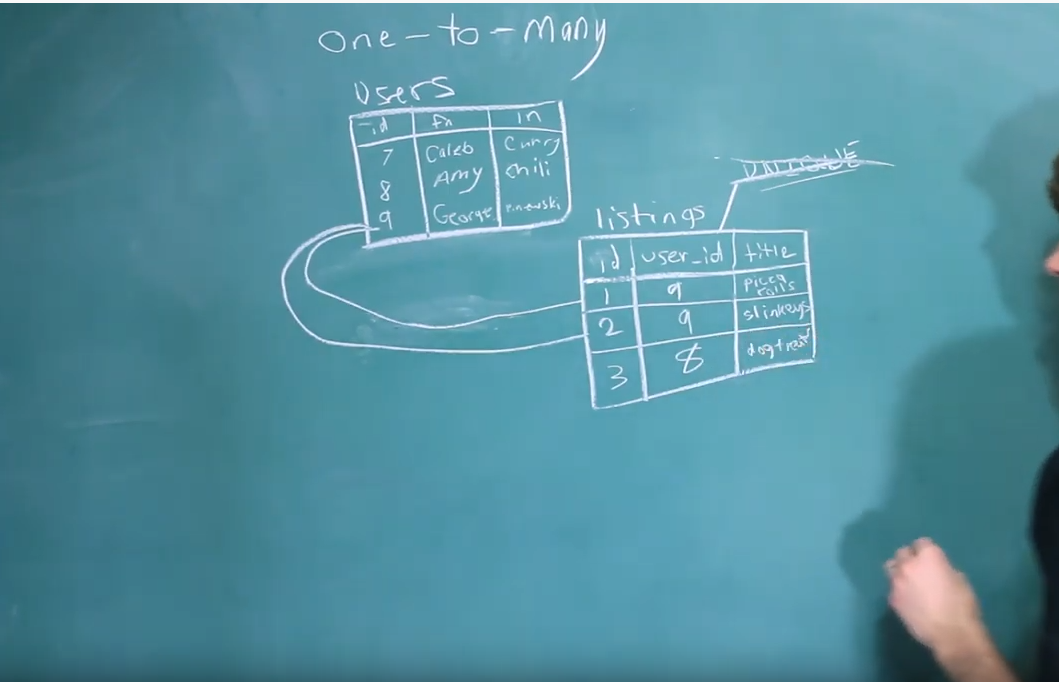 one-to-many
Users
id fn ln
7 Caleb Curry
8 Amy Chili
9 George
UNIQUE
listings
id user_id title
1 9 pizza rolls
2 9 slinkeys
3 8 dog treat